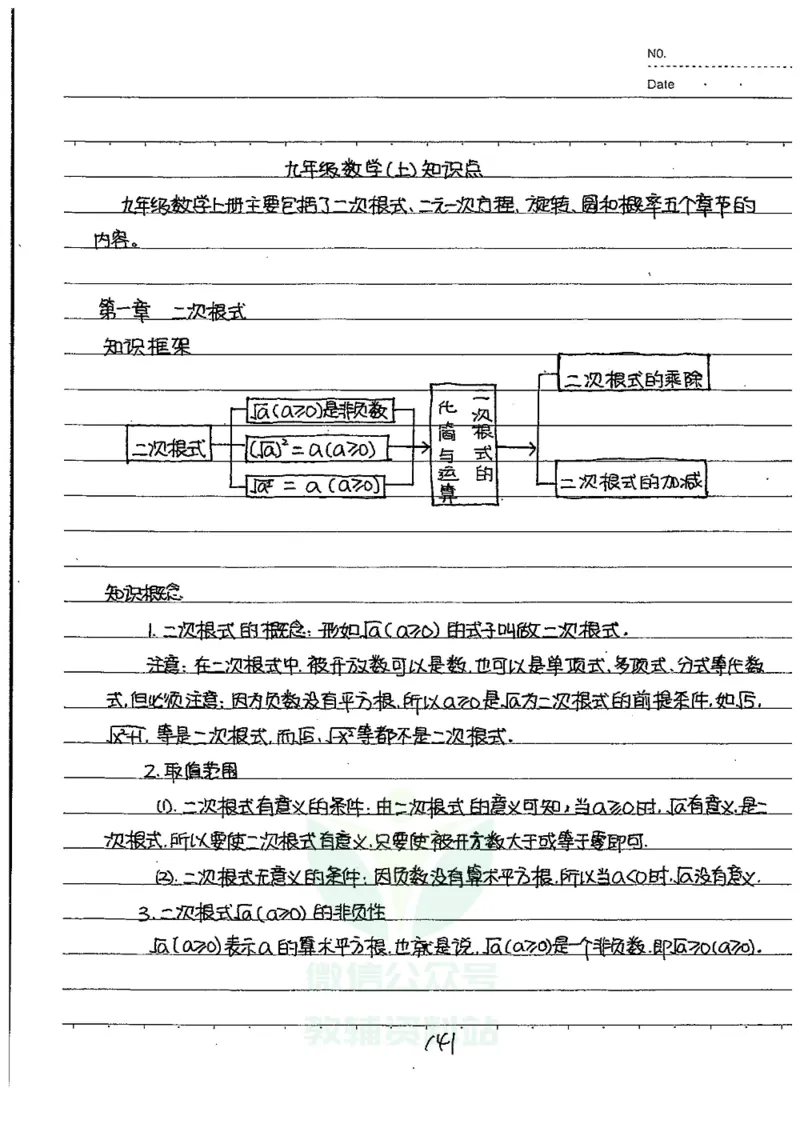 NO.
Date
九年级数学(上)知识点
九年级数学上册主要包括了二次根式、二元一次方程、旋转、圆和概率五个章节的
内容。
第一章 二次根式
知识框架
二次根式
√a(a≥0)是非负数
(√a)²=a(a≥0)
√a²=a(a≥0)
二次根式的
化简与运算
二次根式的乘除
二次根式的加减
知识概念
1.二次根式的概念:形如√a(a≥0)的式子叫做二次根式.
注意:在二次根式中,被开放数可以是数,也可以是单项式、多项式、分式等代数
式,但必须注意:因为负数没有平方根,所以a≥0是√a为二次根式的前提条件,如√5,
√x²+1,等是二次根式,而√-5、√-x²等都不是二次根式.
2.取值范围
(1).二次根式有意义的条件:由二次根式的意义可知,当a≥0时,√a有意义,是二
次根式,所以要使二次根式有意义,只要使被开方数大于或等于零即可.
(2).二次根式无意义的条件:因负数没有算术平方根,所以当a<0时,√a没有意义.
3.二次根式√a(a≥0)的非负性
√a(a≥0)表示a的算术平方根,也就是说,√a(a≥0)是一个非负数,即√a≥0(a≥0).
微信公众号
教辅资料站
141